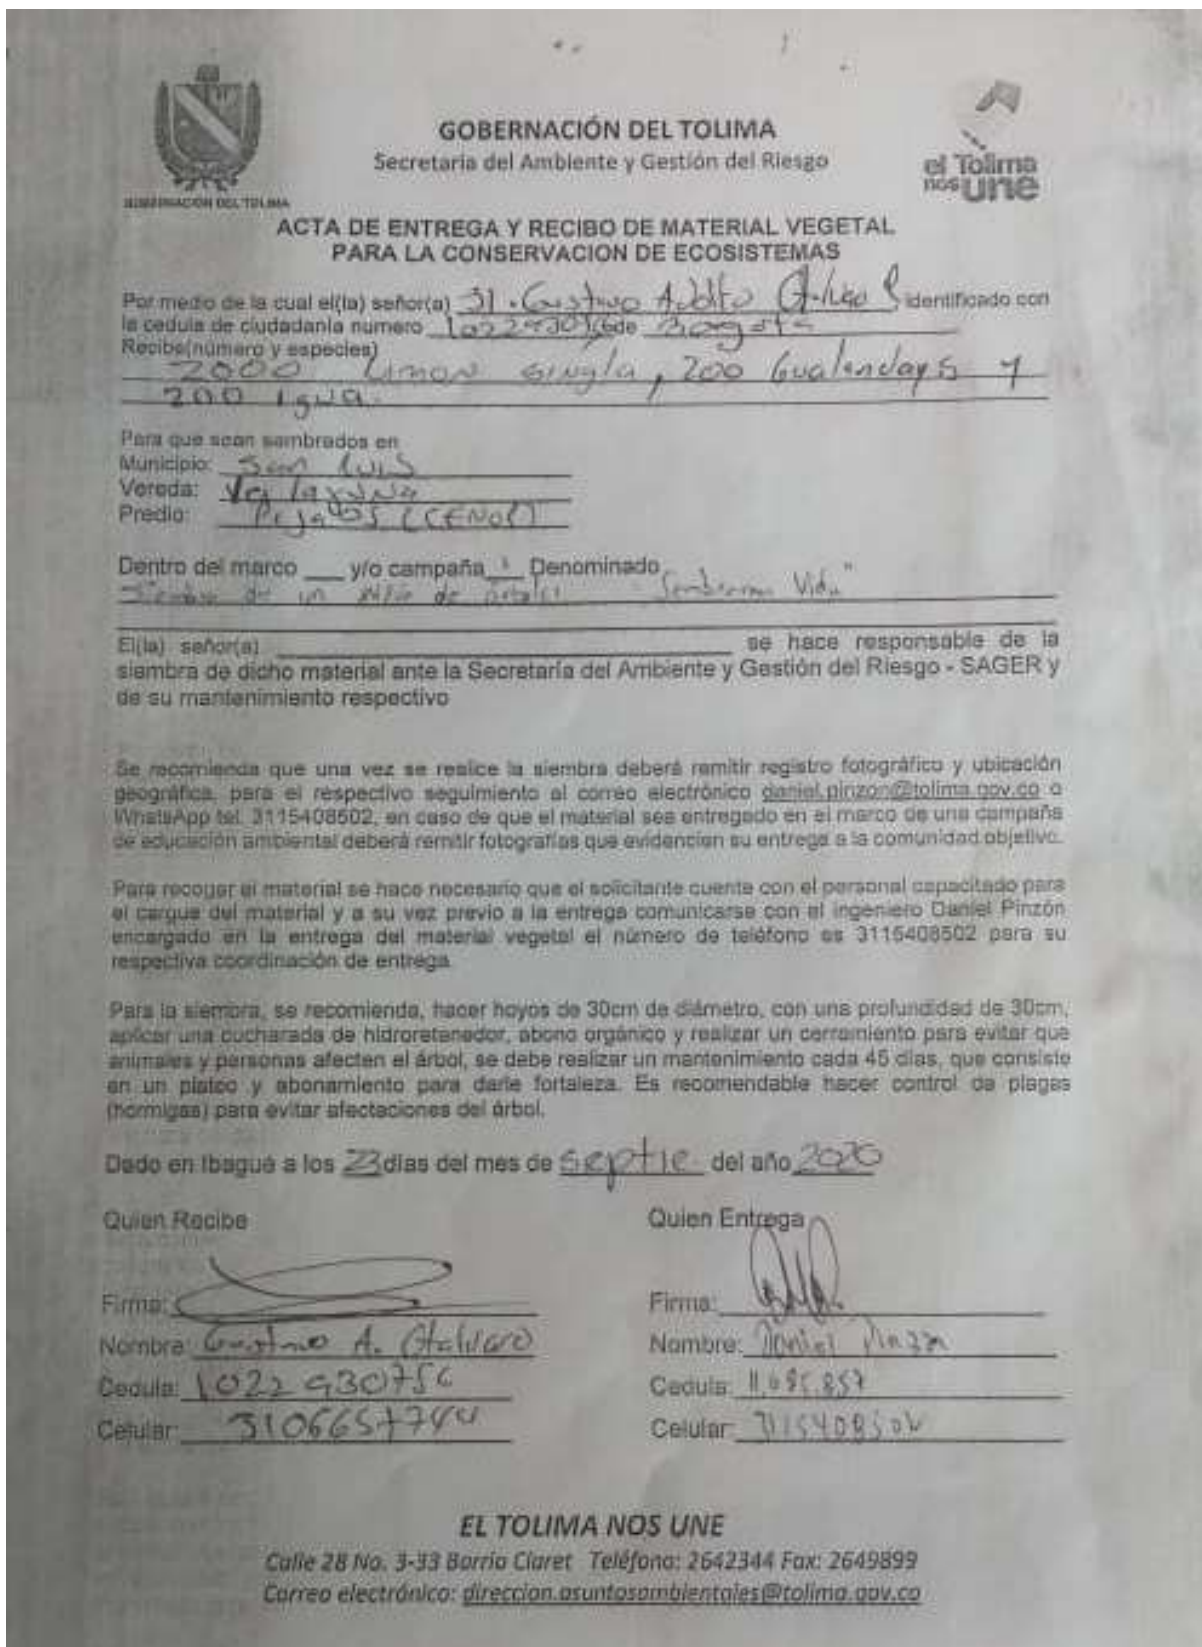 GOBERNACIÓN DEL TOLIMA
Secretaría del Ambiente y Gestión del Riesgo
GOBERNACIÓN DEL TOLIMA
el Tolima
nos une
ACTA DE ENTREGA Y RECIBO DE MATERIAL VEGETAL
PARA LA CONSERVACION DE ECOSISTEMAS
Por medio de la cual el(la) señor(a) Gustavo Adolfo identificado con
la cedula de ciudadanía numero de Bogota
Recibe(número y especies)
2000 Limon swingla, 200 Gualandays y
200 igua.
Para que sean sembrados en
Municipio: San Luis
Vereda:
Predio:
Dentro del marco ___ y/o campaña Denominado
Siembra de un millon de arboles Vida"
El(la) señor(a) ___ se hace responsable de la
siembra de dicho material ante la Secretaría del Ambiente y Gestión del Riesgo - SAGER y
de su mantenimiento respectivo
Se recomienda que una vez se realice la siembra deberá remitir registro fotográfico y ubicación
geográfica, para el respectivo seguimiento al correo electrónico daniel.pinzon@tolima.gov.co o
WhatsApp tel. 3115408502, en caso de que el material sea entregado en el marco de una campaña
de educación ambiental deberá remitir fotografías que evidencien su entrega a la comunidad objetivo.
Para recoger el material se hace necesario que el solicitante cuente con el personal capacitado para
el cargue del material y a su vez previo a la entrega comunicarse con el ingeniero Daniel Pinzón
encargado en la entrega del material vegetal el número de teléfono es 3115408502 para su
respectiva coordinación de entrega
Para la siembra, se recomienda, hacer hoyos de 30cm de diámetro, con una profundidad de 30cm,
aplicar una cucharada de hidroretenedor, abono orgánico y realizar un cerramiento para evitar que
animales y personas afecten el árbol, se debe realizar un mantenimiento cada 45 días, que consiste
en un plateo y abonamiento para darle fortaleza. Es recomendable hacer control de plagas
(hormigas) para evitar afectaciones del árbol.
Dado en Ibagué a los 23 días del mes de septie del año 2020
Quien Recibe Quien Entrega
Firma: Firma:
Nombre: Gustavo A. Nombre: Daniel Pinzon
Cedula: 1022930756 Cedula:
Celular: 3106657744 Celular: 3115408502
EL TOLIMA NOS UNE
Calle 28 No. 3-33 Barrio Claret Teléfono: 2642344 Fax: 2649899
Correo electrónico: direccion.asuntosambientales@tolima.gov.co